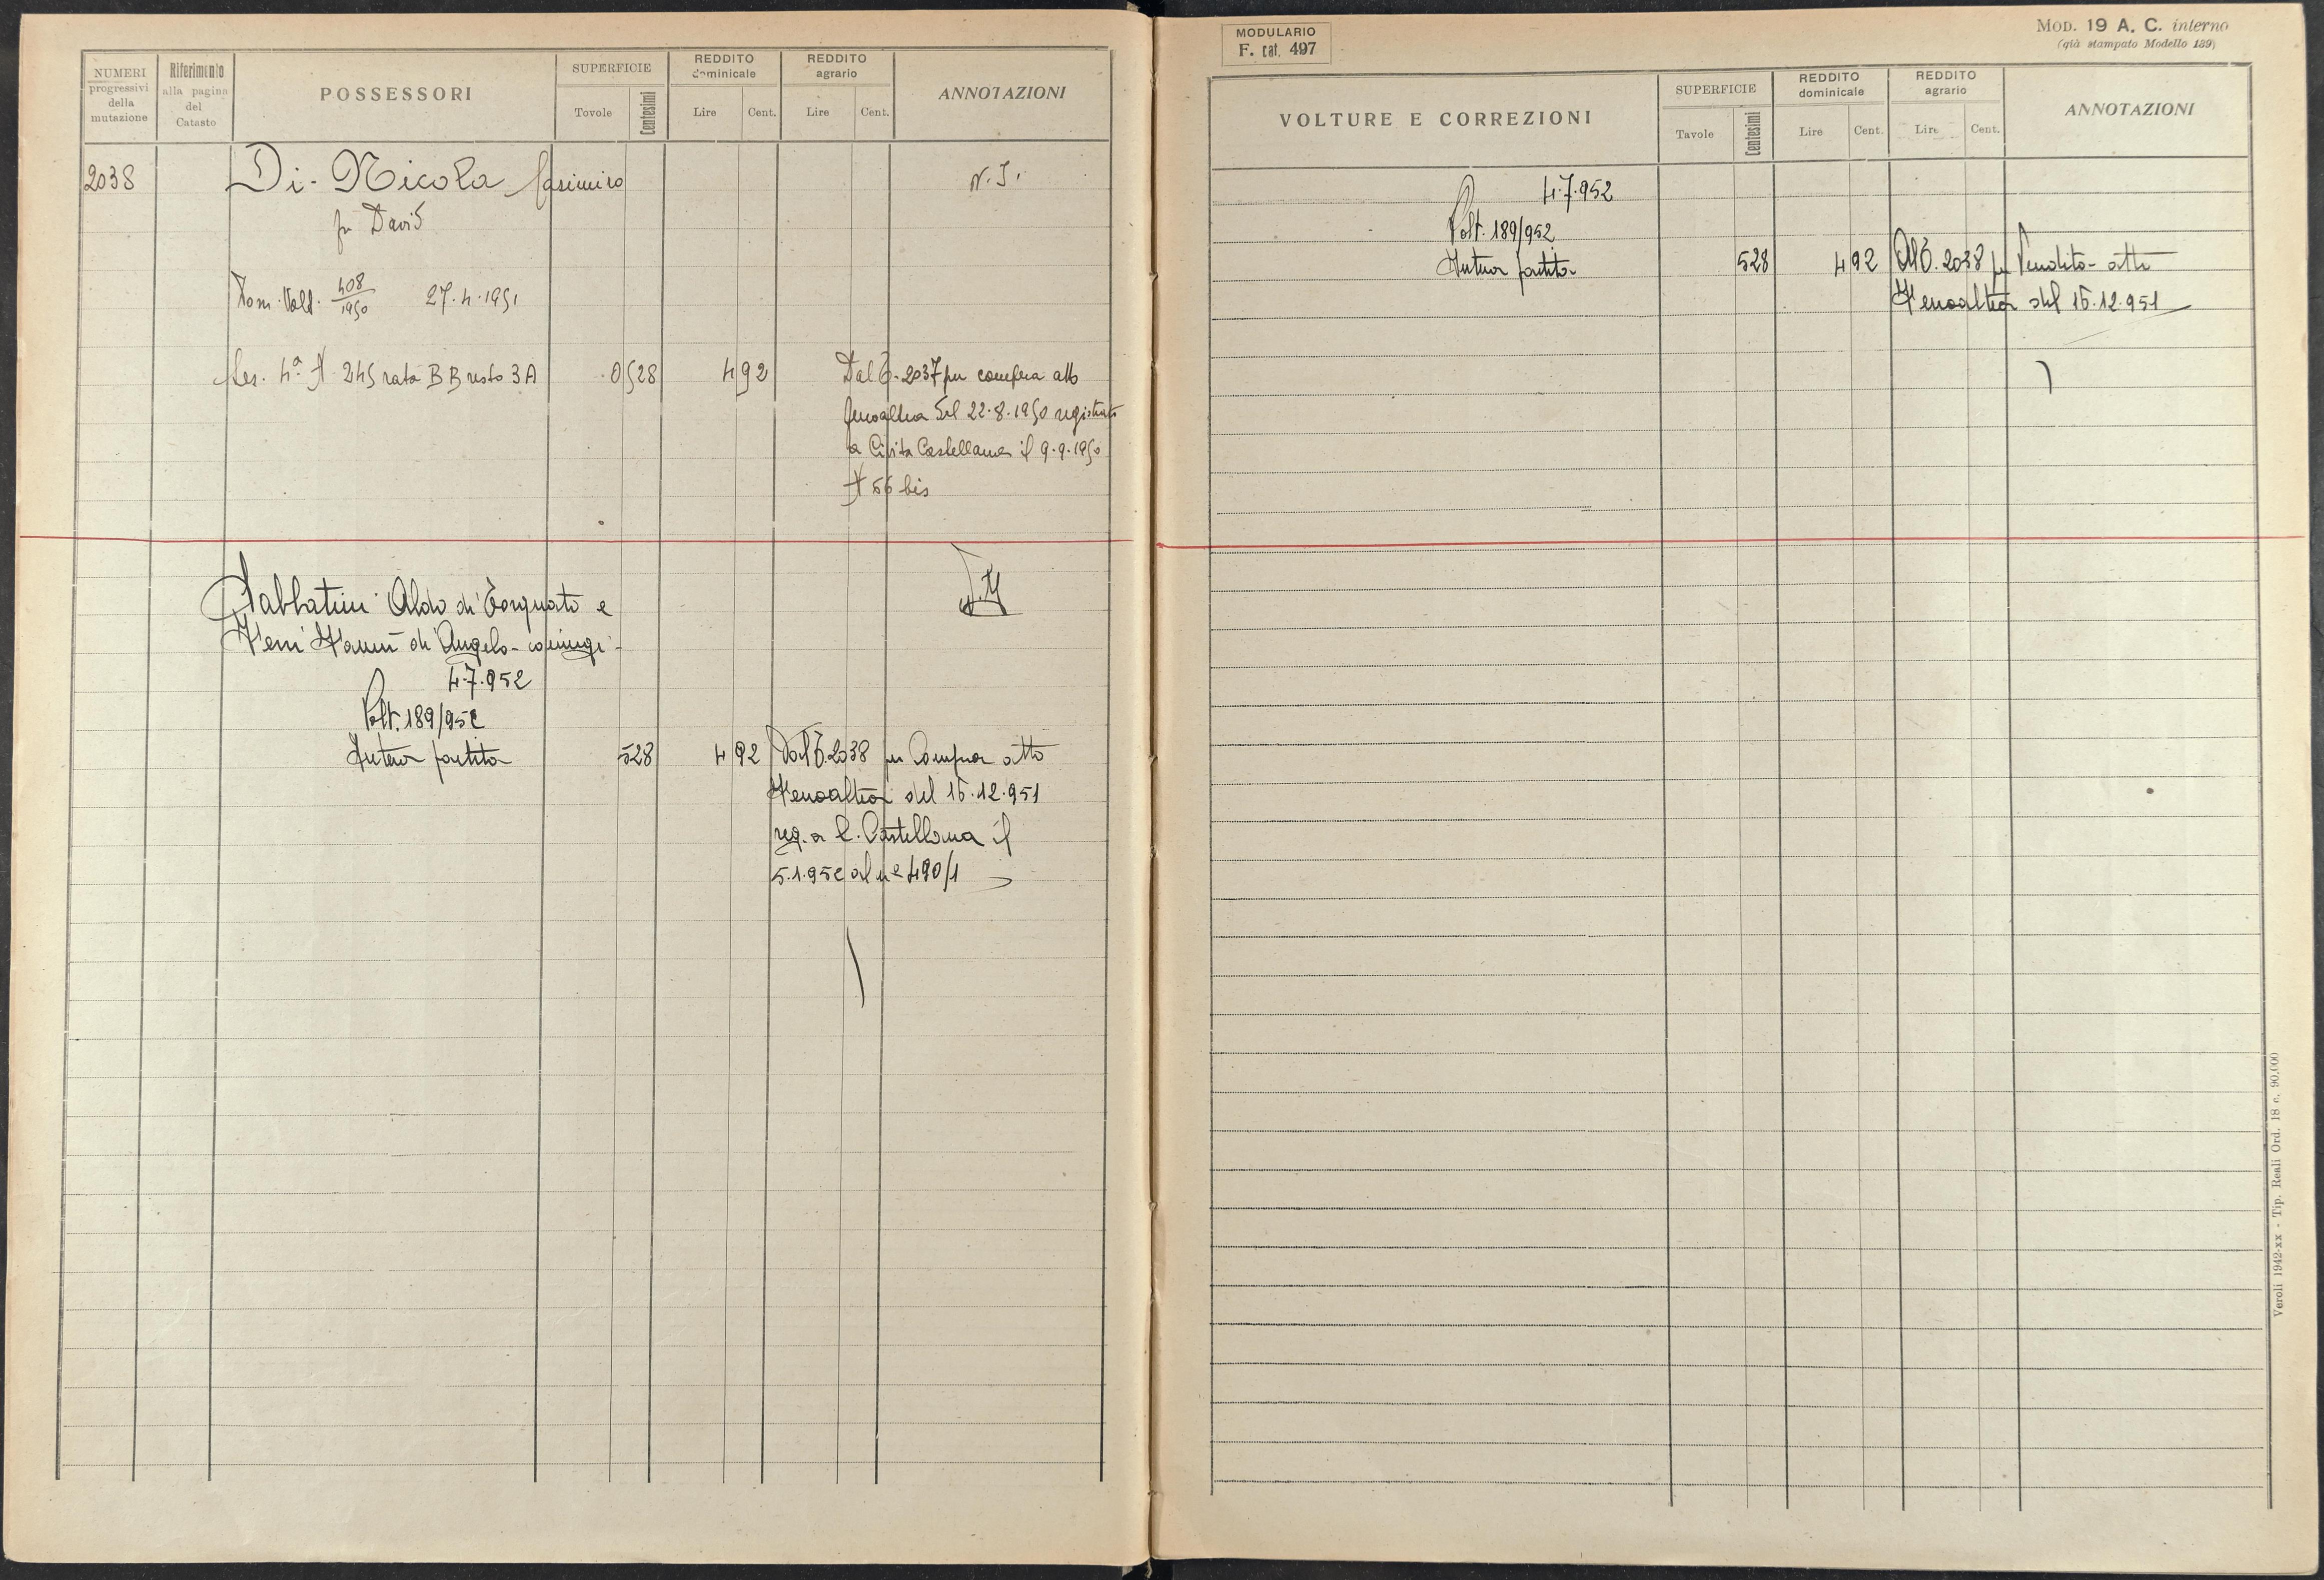 NUMERI progressivi della mutazione
Riferimento alla pagina del Catasto
POSSESSORI
SUPERFICIE
Tovole
Centesimi
REDDITO dominicale
Lire
Cent.
REDDITO agrario
Lire
Cent.
ANNOTAZIONI
2038
Di-Nicola Casimiro
fu David
N.I.
Nom. Volt. 408/1950 27.4.1951
Sez. 4ª N 245 rata BB resto 3A 0528 492 Dal C. 2037 per compra atto
Fenoaltea del 22.8.1950 registrato
a Civita Castellana il 9.9.1950
N 56 bis
Sabbatini Aldo di Torquato e
di Angelo-coniugi-
4.7.952
Volt. 189/952
Intera partita 528 492 Dal C. 2038 per Compra atto
Fenoaltea del 15.12.951
reg. a C. Castellana il
5.1.952 al nº 490/1
MODULARIO
F. cat. 497
MOD. 19 A. C. interno
(già stampato Modello 189)
VOLTURE E CORREZIONI
SUPERFICIE
Tavole
Centesimi
REDDITO dominicale
Lire
Cent.
REDDITO agrario
Lire
Cent.
ANNOTAZIONI
4.7.952
Volt. 189/952
Intera partita 528 492 Al C. 2038 per Vendita- atto
Fenoaltea del 15.12.951
Veroli 1942-xx - Tip. Reali Ord. 18 c. 90.000